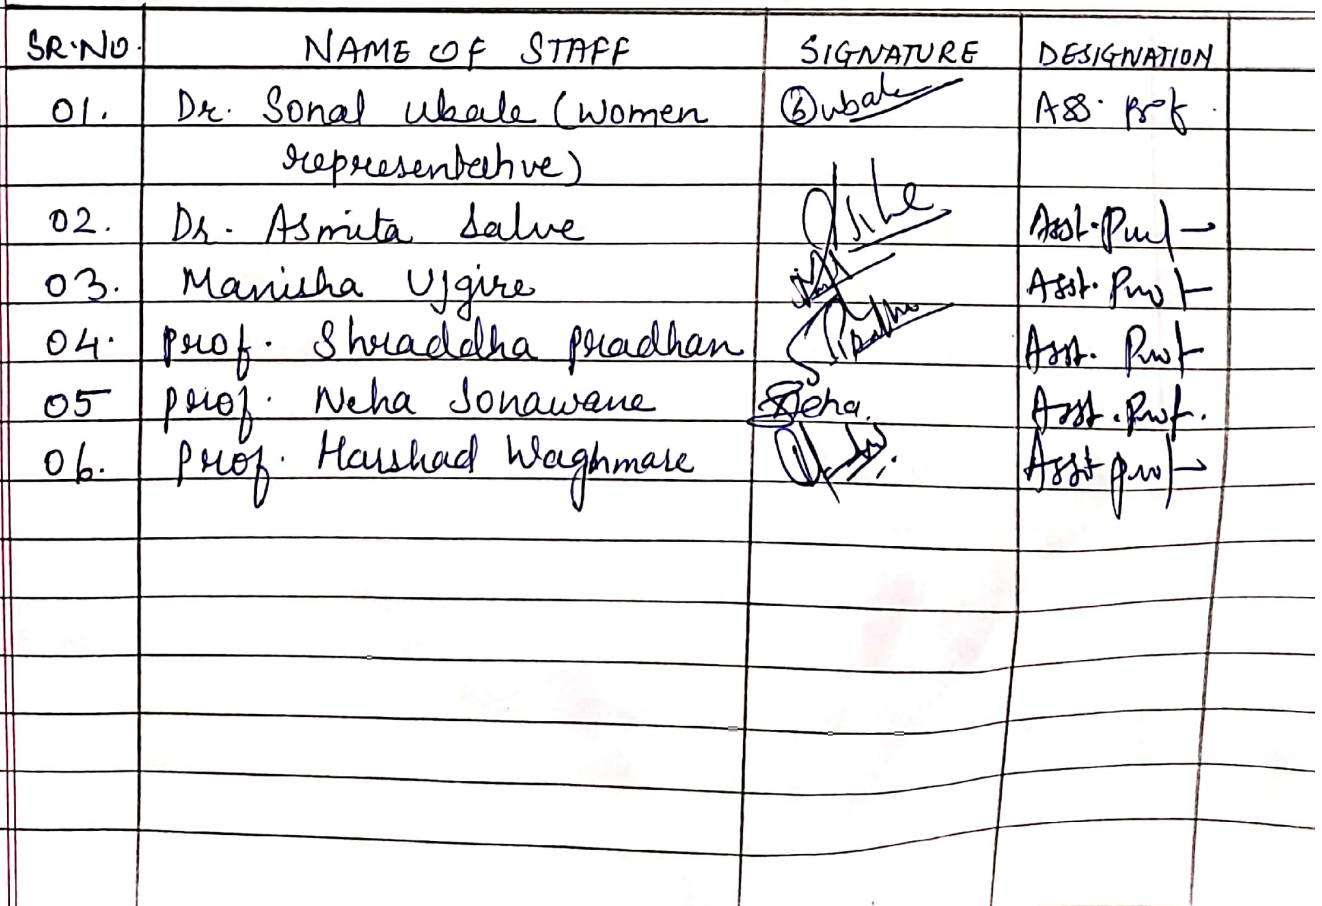 SR.NO. NAME OF STAFF SIGNATURE DESIGNATION
01. Dr. Sonal Ubale (Women Subale Ass. Prof.
representative)
02. Dr. Asmita Salve Asst. Prof
03. Manisha Ujgire Asst. Prof
04. Prof. Shraddha Pradhan Asst. Prof
05 Prof. Neha Sonawane Neha. Asst. Prof.
06. Prof. Harshad Waghmare Asst Prof